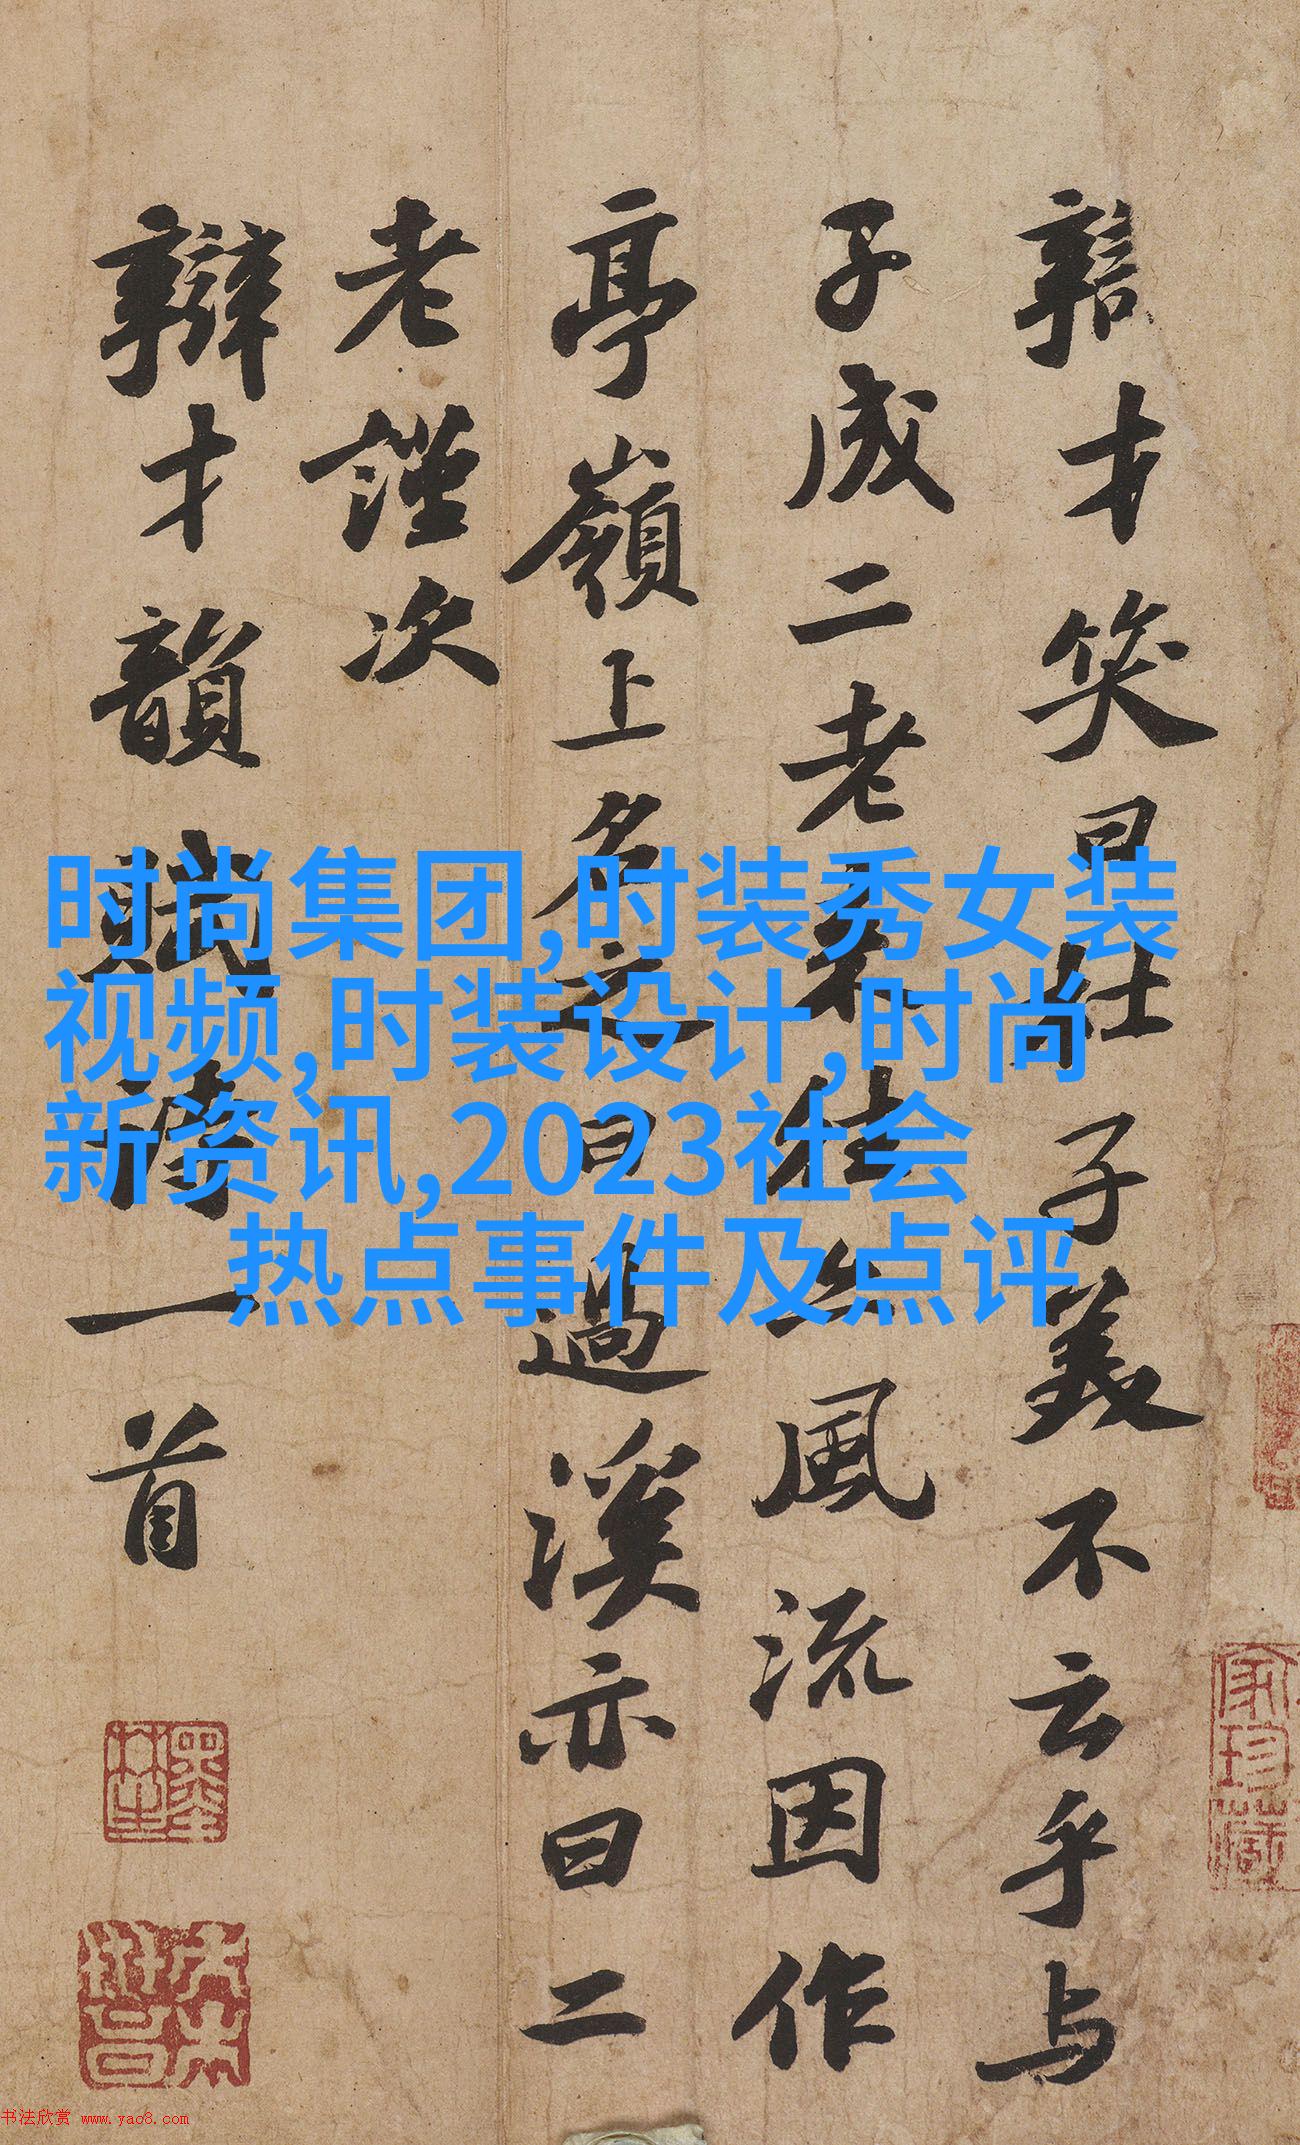 辯才笑曰杜子美不云乎与
子成二老来往亦風流因作
亭嶺上名之曰過溪亦曰二
老謹次
辯才韻賦詩一首
时尚集团,时装秀女装
视频,时装设计,时尚
新资讯,2023社会
热点事件及点评
家珍藏
书法欣赏 www.yac8.com